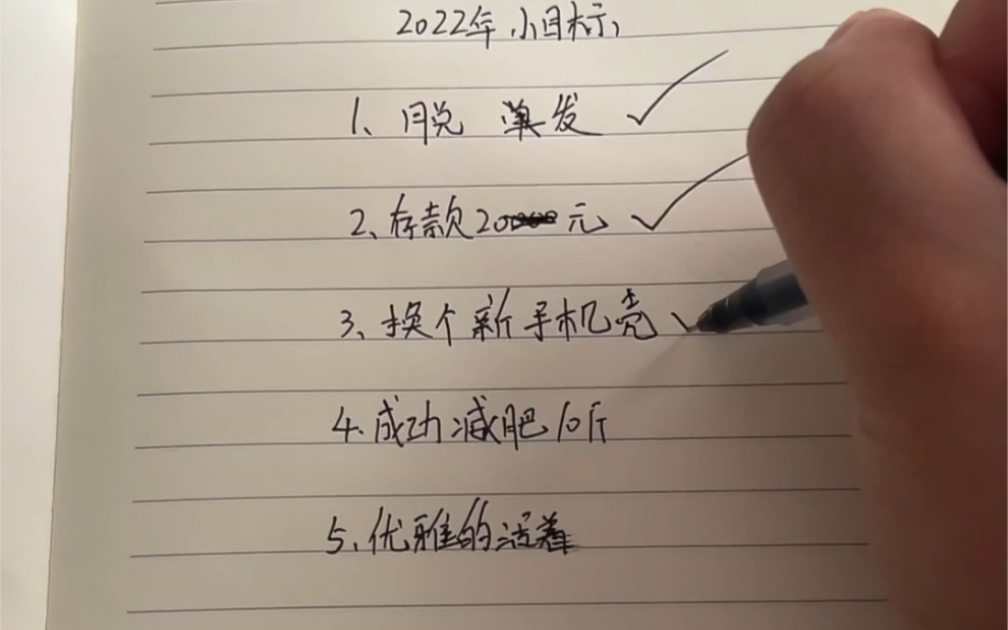 2022年小目标
1、脱单发 ✓
2、存款20元 ✓
3、换个新手机壳
4.成功减肥10斤
5.优雅的活着